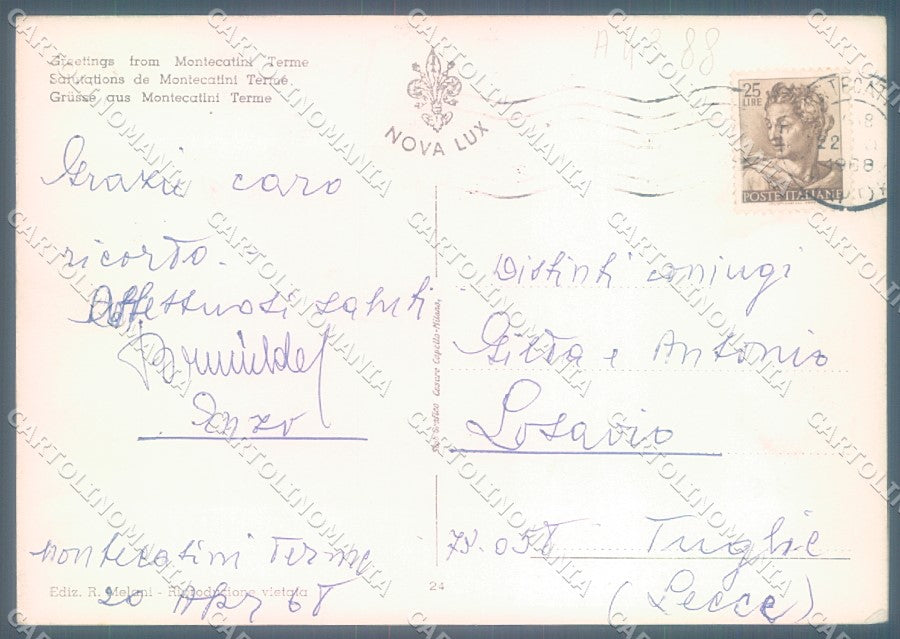 Greetings from Montecatini Terme
Salutations de Montecatini Terme
Grüsse aus Montecatini Terme
NOVA LUX
A 4388
25
LIRE
POSTE ITALIANE
22
1968
Grazie caro
ricordo.
Affettuosi saluti
Enzo
Montecatini Terme
20 Apr 68
Ediz. R. Melani - Riproduzione vietata
24
Cesare Capello - Milano
Distinti coniugi
Gilda e Antonio
Losavio
73.058 Tuglie
(Lecce)
CARTOLINOMANIA